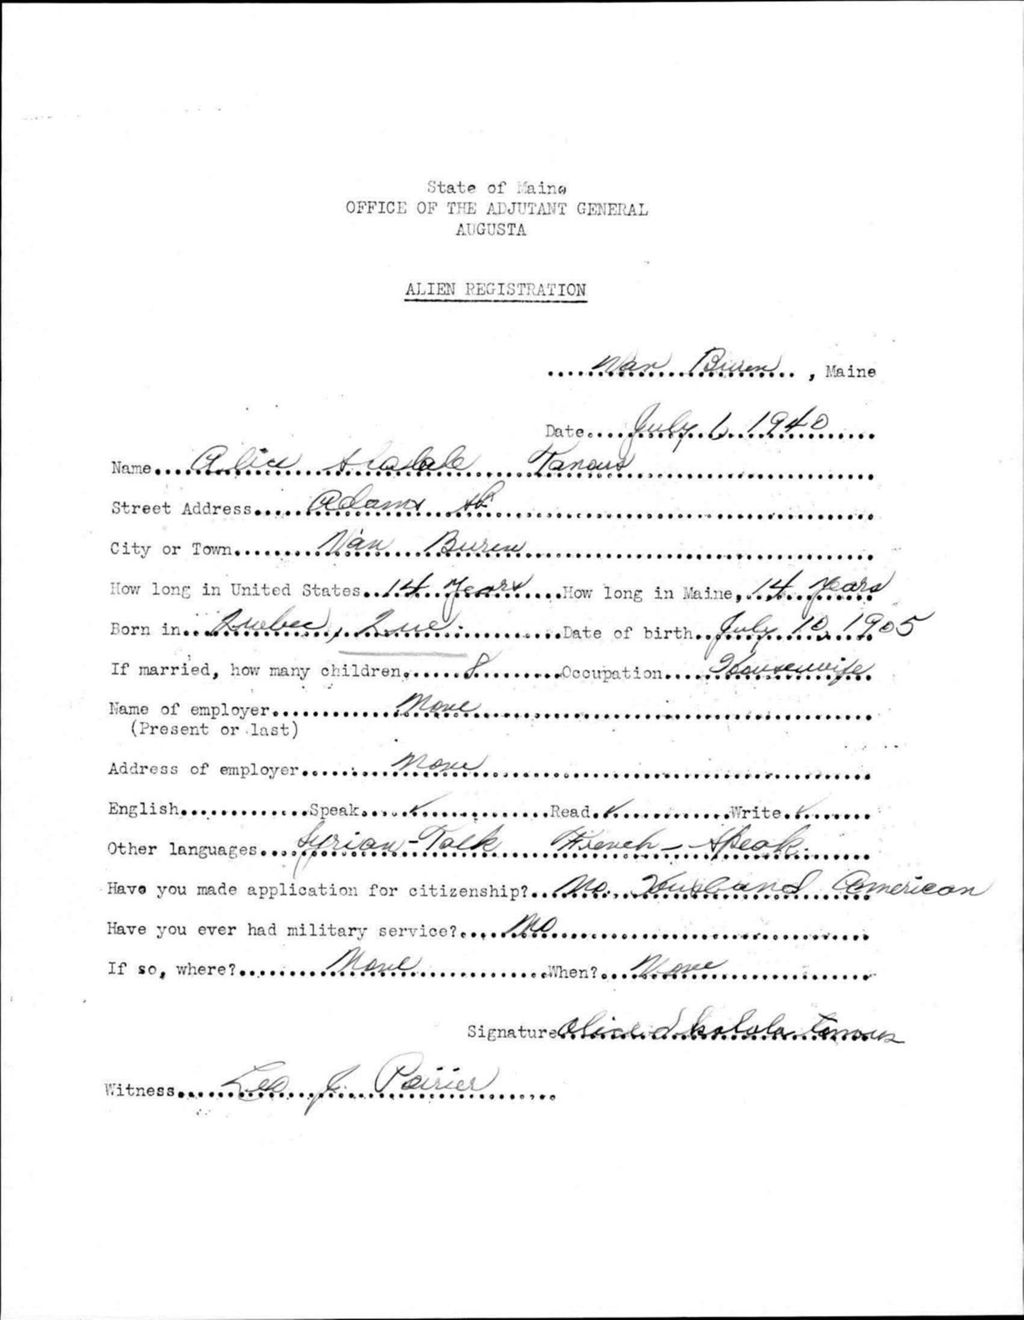 State of Maine
OFFICE OF THE ADJUTANT GENERAL
AUGUSTA
ALIEN REGISTRATION
Van Buren, Maine
Date July 1, 1940
Name Alice Tanous
Street Address Adams St.
City or Town Van Buren
How long in United States 14 Years How long in Maine, 14 Years
Born in Quebec, Que. Date of birth July 10, 1905
If married, how many children, 8 Occupation Housewife
Name of employer None
(Present or last)
Address of employer None
English Speak ✓ Read ✓ Write ✓
Other languages Syrian - Talk French - Speak.
Have you made application for citizenship? No. Husband American
Have you ever had military service? No
If so, where? None When? None
Signature Alice Tanous
Witness Leo J. Poirier